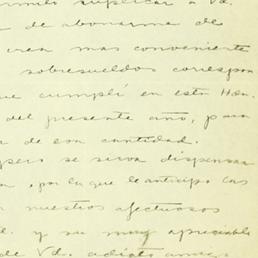 suplicar a Vd.
de abonarme de
crea mas conveniente
sobresueldos correspon
que cumplí en esta Hda.
del presente año, para
de esa cantidad.
espero se sirva dispensar
, por lo que le anticipo las
nuestros afectuosos
y su muy apreciable
de Vd. adicto amigo